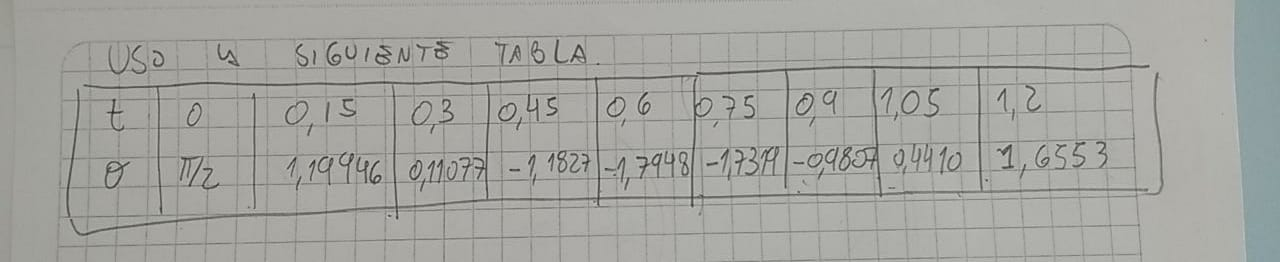 USO LA SIGUIENTE TABLA.
t 0 0,15 0,3 0,45 0,6 0,75 0,9 1,05 1,2
θ π/2 1,19946 0,11077 -1,1827 -1,7948 -1,7319 -0,9807 0,4410 1,6553